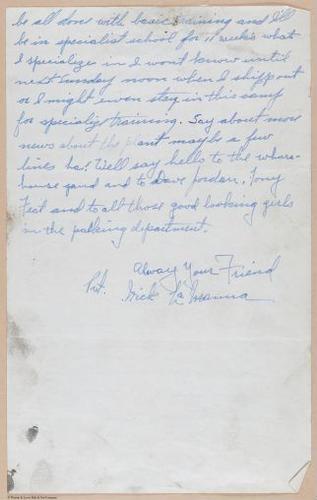 be all done with basic training and I'll
be in specialist school for 11 weeks what
I specialize in I wont know until
next Sunday noon when I ship out
or I might even stay in this camp
for specialize training. Say about more
news about the plant maybe a few
lines ha! Well say hello to the whare-
house gand and to Dave Jordan, Tony
Fest and to all those good looking girls
in the packing department.
Alway Your Friend
Pvt. Nick La